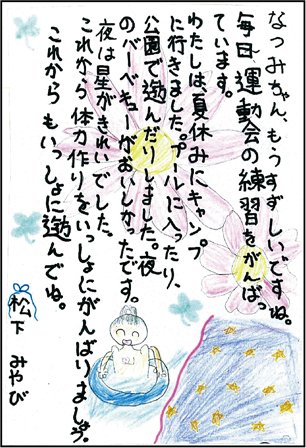 なつみちゃん、もうすずしいですね。
毎日、運動会の練習をがんばっ
ています。
わたしは、夏休みにキャンプ
に行きました。プールに入ったり、
公園で遊んだりしました。夜
のバーベキューがおいしかったです。
夜は星がきれいでした。
これから体力作りをいっしょにがんばりましょう。
これからもいっしょに遊んでね。
松下 みやび